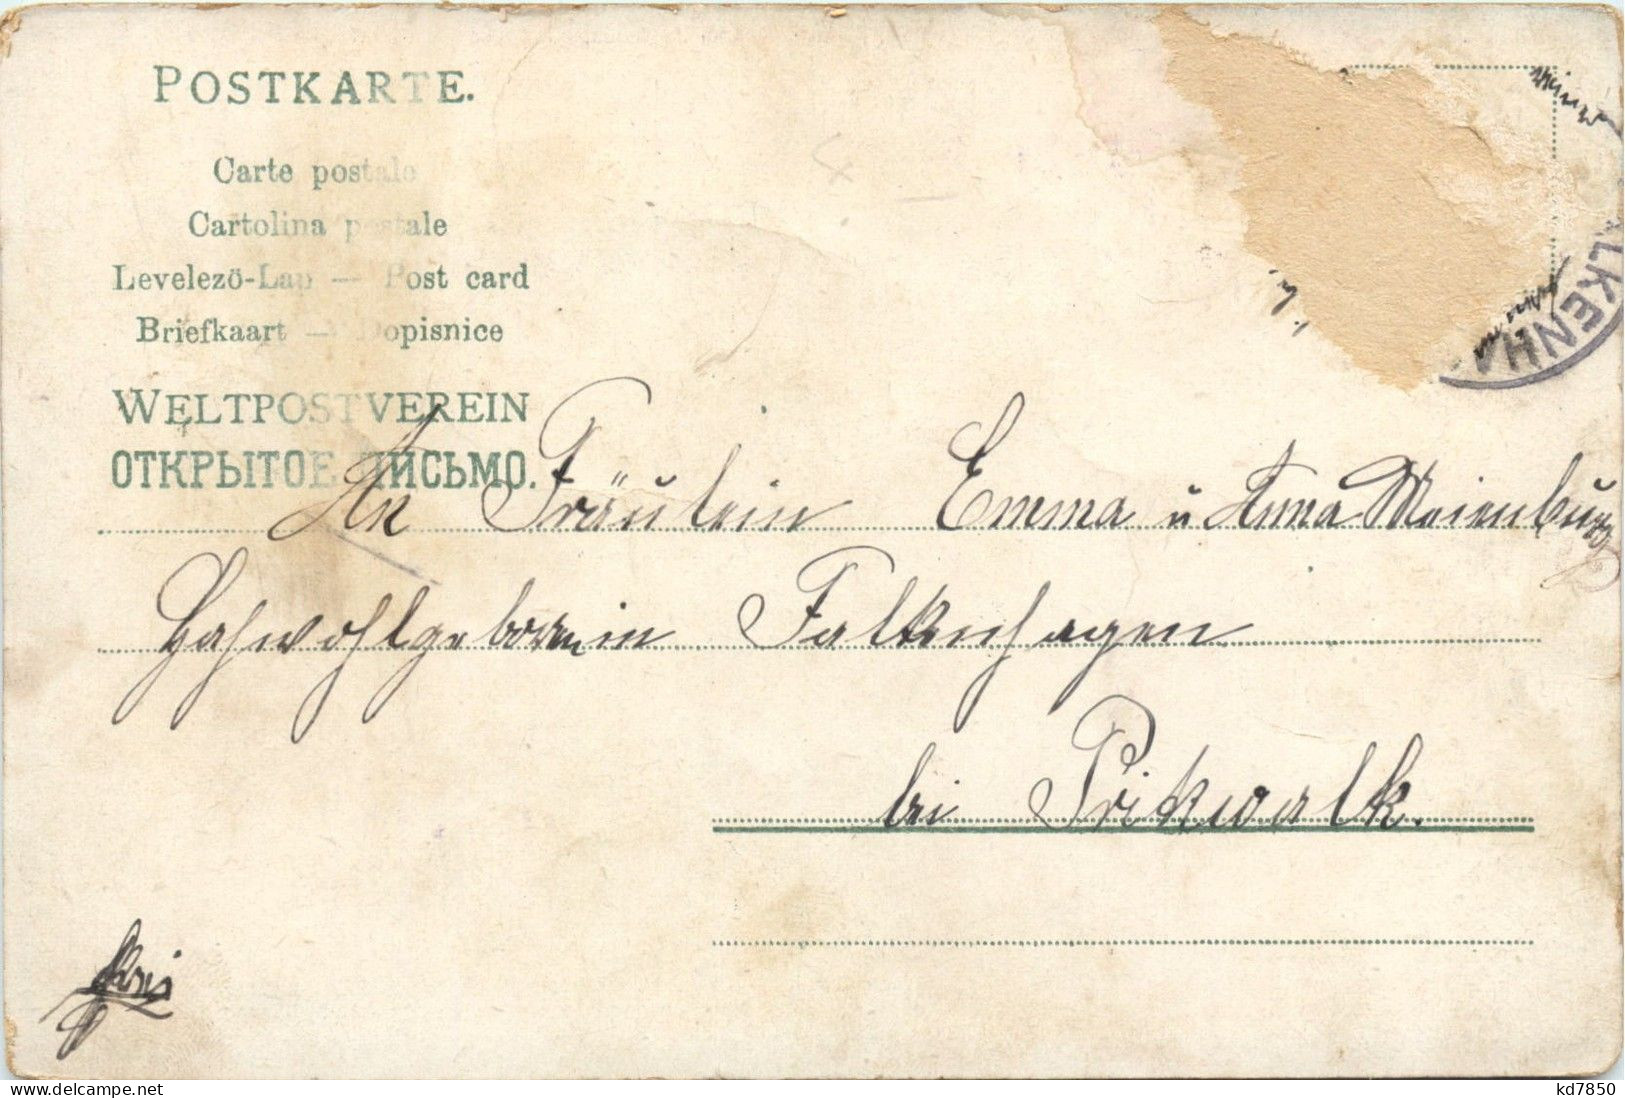 POSTKARTE.
Carte postale
Cartolina postale
Levelezö-Lap — Post card
Briefkaart — Dopisnice
WELTPOSTVEREIN
ОТКРЫТОЕ ПИСЬМО.
ALKENHA
An Fräulein Emma u Anna Meienburg
Falkenhagen
bei Prikwalk.
delcampe.net
kd7850